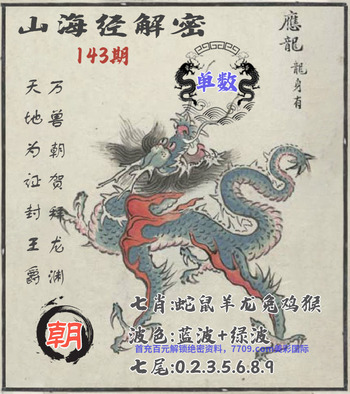 山海经解密
143期
應龍
龍身有
单数
万兽朝贺释龙渊
天地为证封王爵
朝
七肖:蛇鼠羊龙兔鸡猴
波色:蓝波+绿波
首充百元解锁绝密资料，7709.com美彩国际
七尾:0.2.3.5.6.8.9